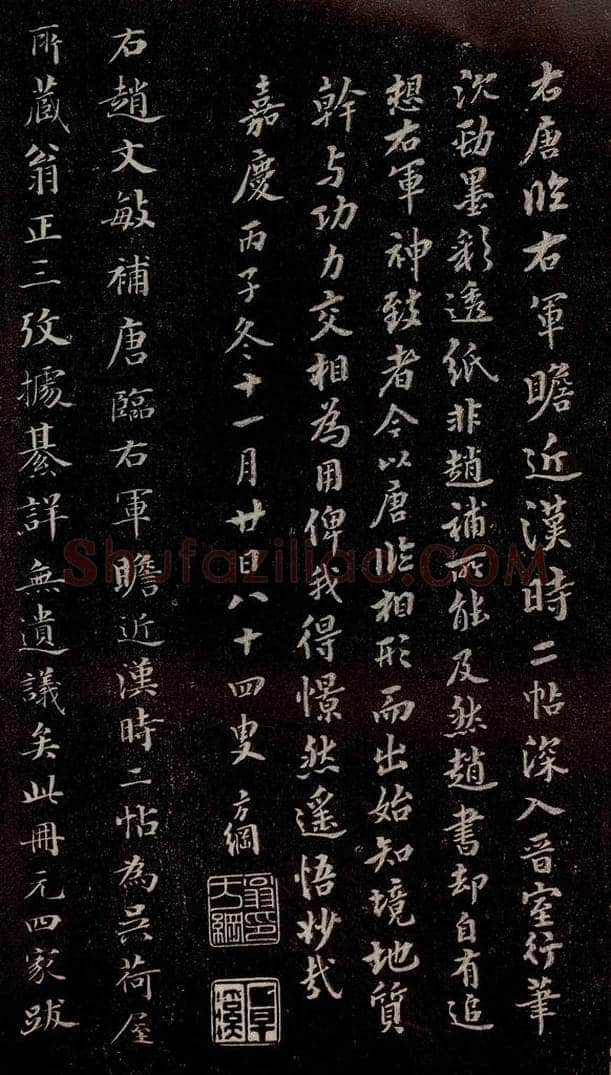 右唐临右軍瞻近漢時二帖深入晉室行筆
沈勁墨彩透紙非趙補所能及然趙書却自有追
想右軍神致者今以唐临相形而出始知境地質
幹与功力交相為用俾我得憬然遥悟妙哉
嘉慶丙子冬十一月廿日八十四叟方綱
翁方綱印
覃溪
右趙文敏補唐臨右軍瞻近漢時二帖為吳荷屋
所藏翁正三攷據綦詳無遺議矣此冊元四家跋
Shufaziliao.COM